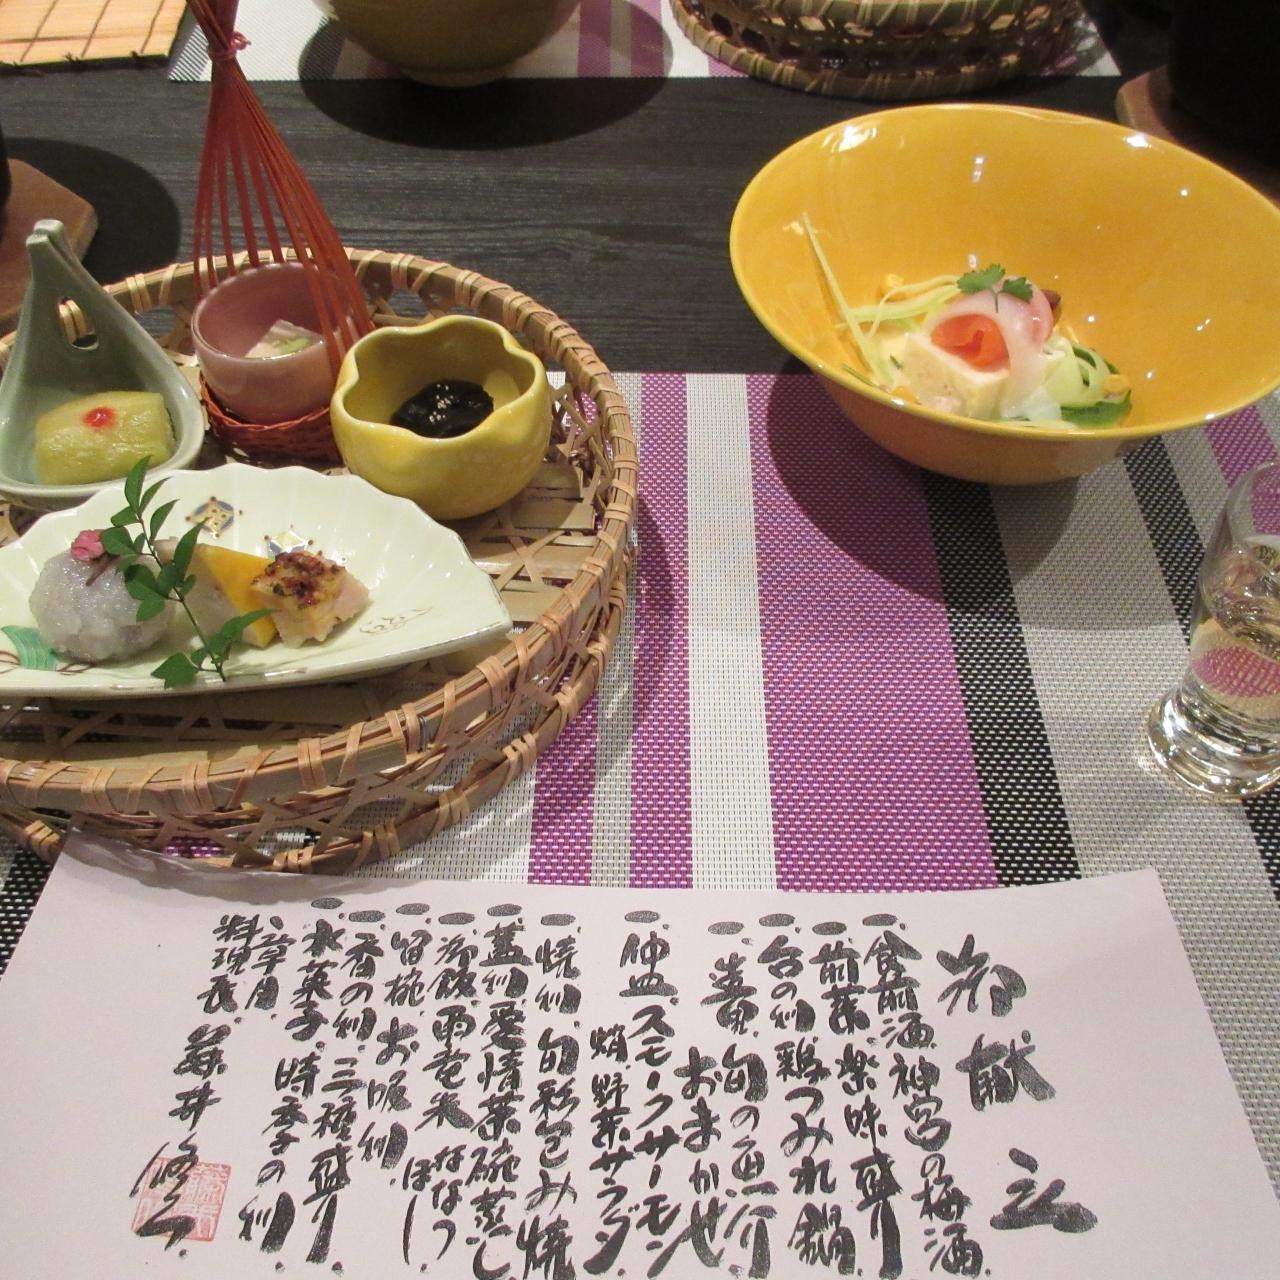 御献立
一、食前酒 神宮の梅酒
一、前菜 楽味盛り
一、台の利 鶏つみれ鍋
一、造里 旬の魚介
おまかせ
一、仲皿 スモークサーモン
野菜サラダ
一、焼利 旬彩包み焼
一、蓋利 愛情茶碗蒸し
一、御飯 雨竜米 ななつぼし
一、留椀 お吸利
一、香の利 三種盛り
一、水菓子 時季の利
料理長